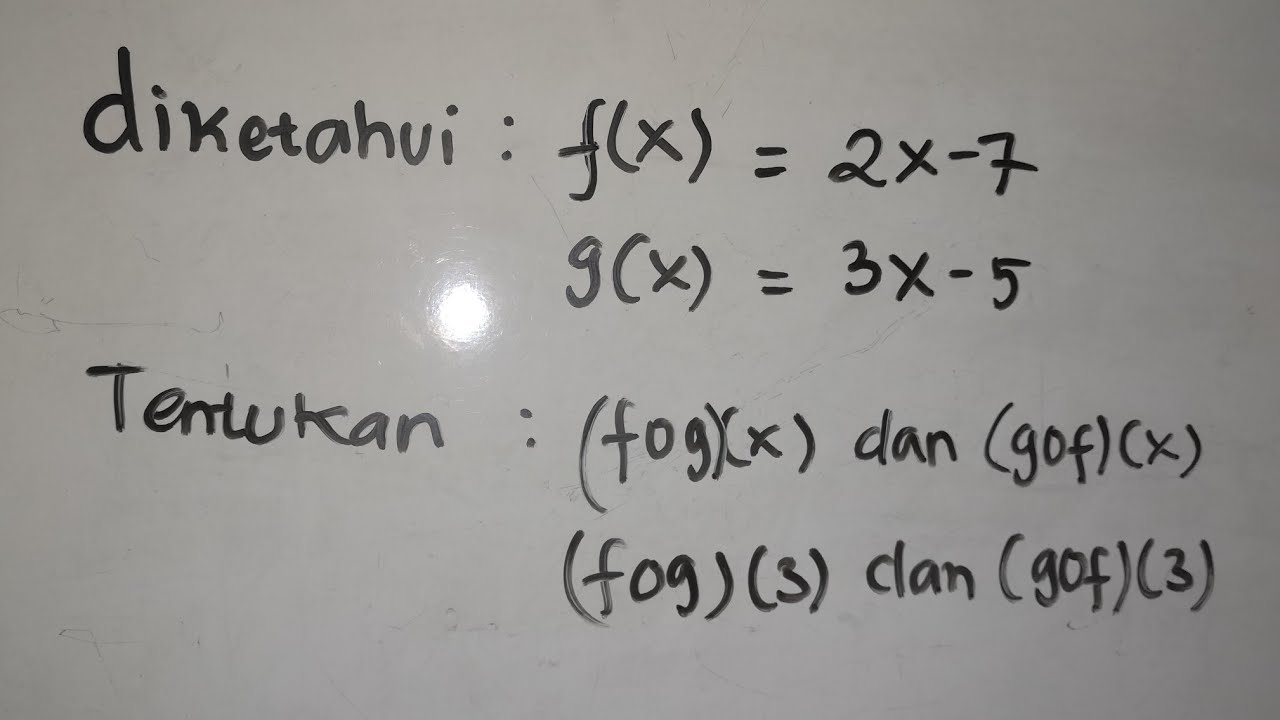 diketahui : f(x) = 2x-7
g(x) = 3x-5
Tentukan : (fog)(x) dan (gof)(x)
(fog)(3) dan (gof)(3)